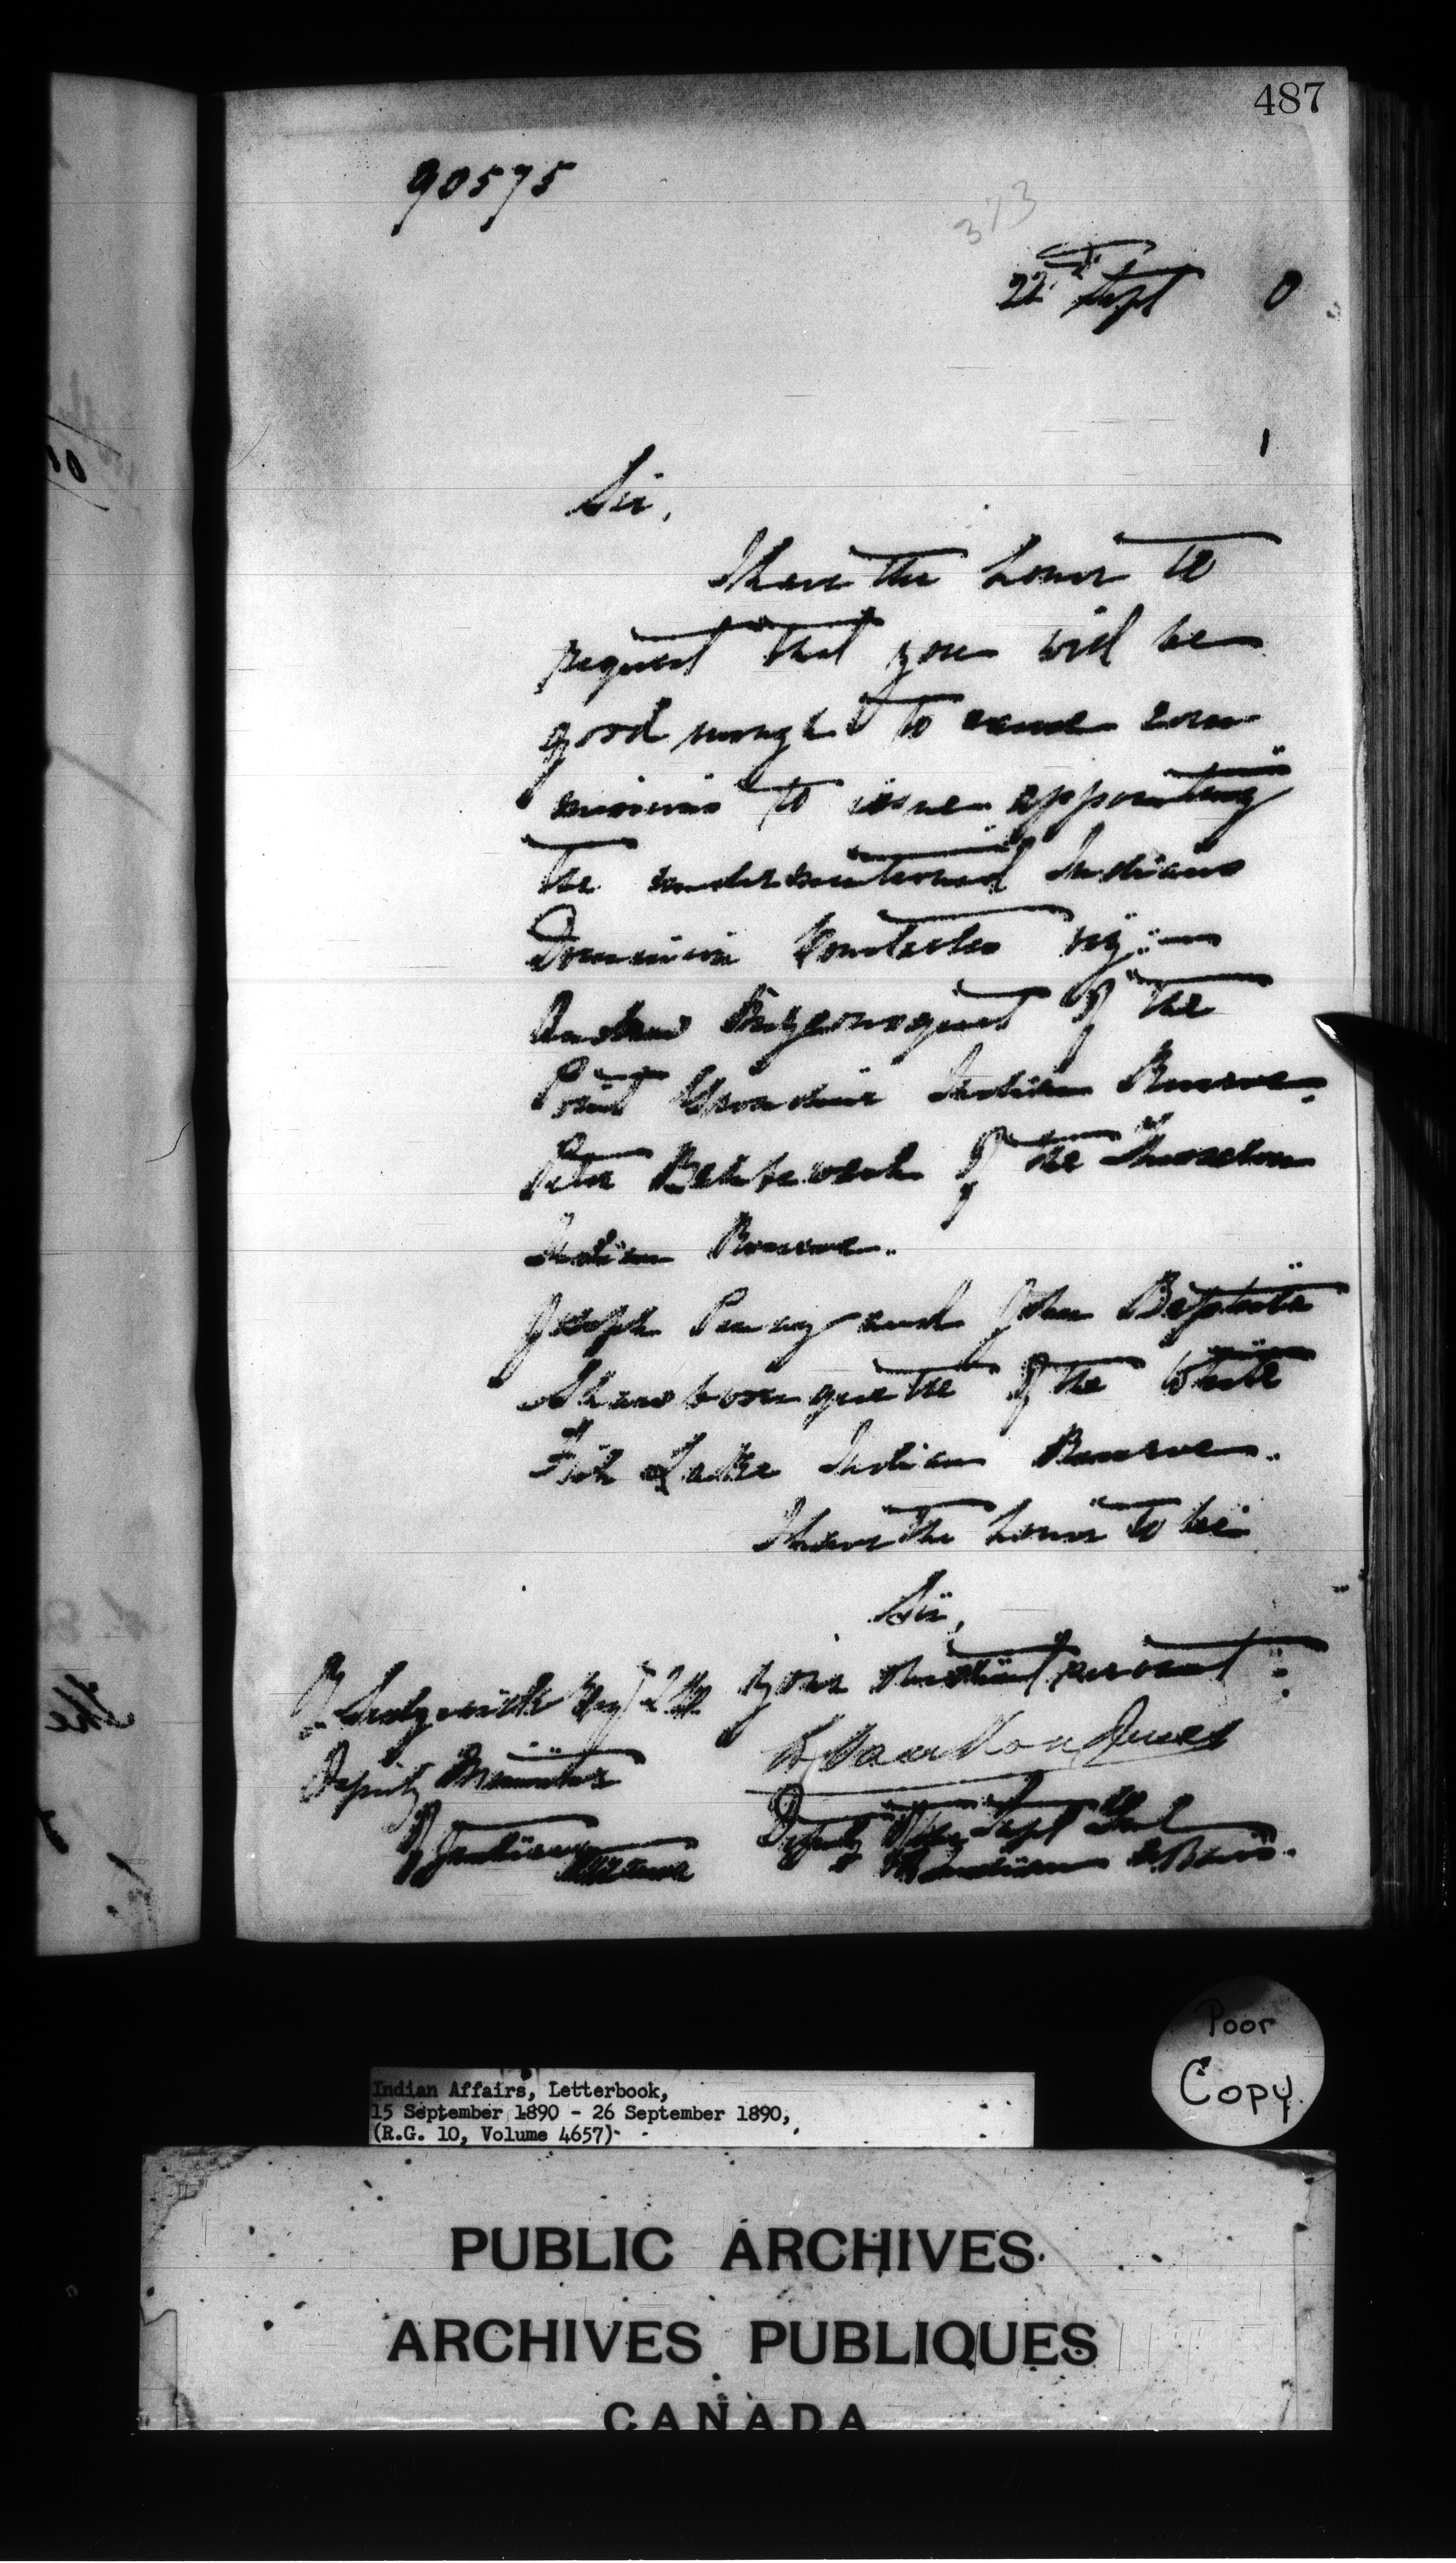 487
90575
373
22nd Sept 0
Sir,
I have the honor to
request that you will be
good enough to cause com
missions to issue appointing
the undermentioned Indians
Dominion Constables viz:—
of the
Point Grondine Indian Reserve.
Peter of the Thessalon
Indian Reserve.
Joseph and John Baptiste
of the White
Fish Lake Indian Reserve.
I have the honor to be
Sir,
Your obedient servant
R. Sedgwick Esq Q.C.
L. VanKoughnet
Deputy Minister
Deputy Supt Genl
of Justice
of Indian Affairs.
Ottawa
Poor
Copy
Indian Affairs, Letterbook,
15 September 1890 - 26 September 1890,
(R.G. 10, Volume 4657)
PUBLIC ARCHIVES
ARCHIVES PUBLIQUES
CANADA